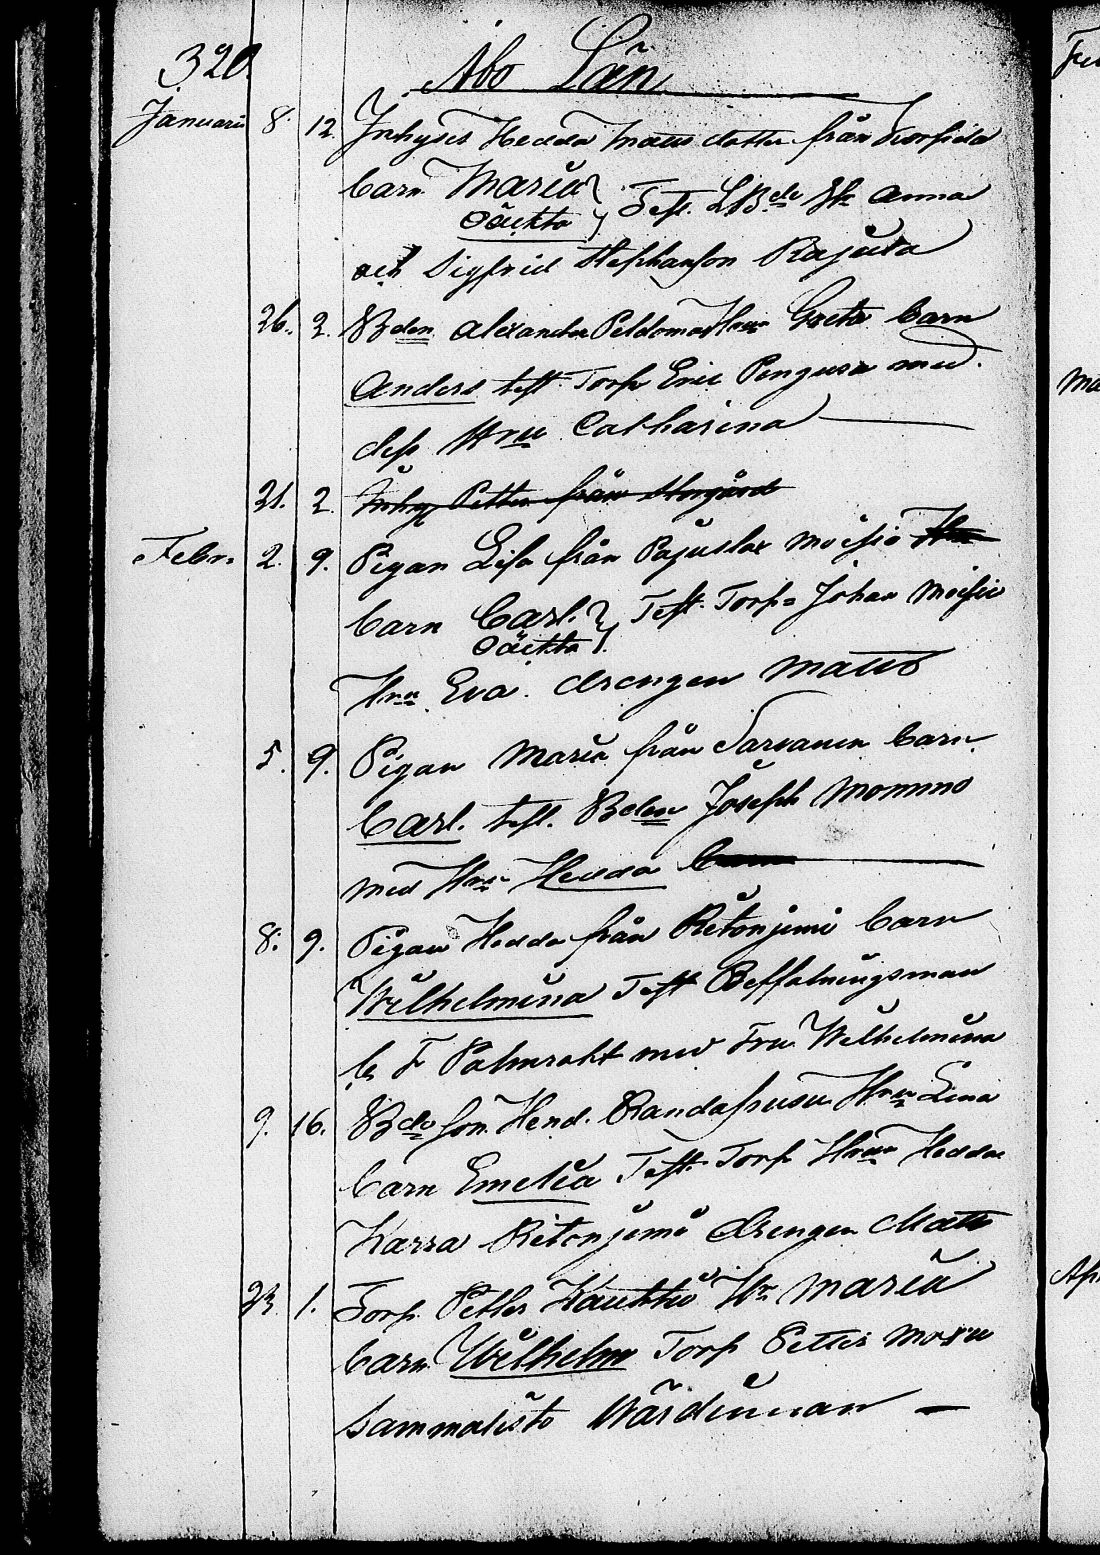 320.
Åbo Län
Januari 8. 12. Inhyses Hedda Matts dotter från
barn Maria
Oäckta } Test. LBde Anna
och Sigfrid Stephansson Rajula
26. 2. Bden Alexander Peldoma Hru Greta barn
Anders test Torp Eric Pengusa med
dess Hru Catharina
21. 2. Inhys Petter från Storgård
Febr. 2. 9. Pigan Lisa från Pajusla Moisio
barn Carl.
Oäckta } Test. Torp= Johan Moisio
Hru Eva. drengen Matts
5. 9. Pigan Maria från barn
Carl. test. Bden Joseph
med Hru Hedda barn
8. 9. Pigan Hedda från Ritonjemi barn
Wilhelmina Test Beffalningsman
C F Palmroht med Fru Wilhelmina
9. 16. Bde son Hend. Hru Lena
barn Emelia Test. Torp Hru Hedda
Karra Ritonjemi drengen Matts
23. 1. Torp. Petter Hr Maria
barn Wilhelm Torp Petter
Sammalisto
Ap